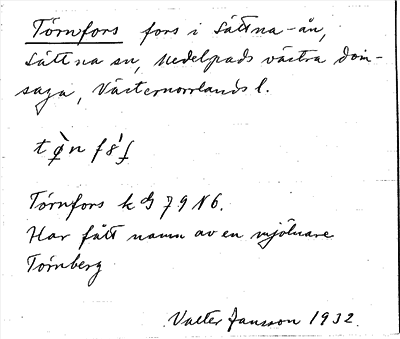 Törnfors fors i Sättna-ån,
Sättna sn, Medelpads västra dom-
saga, Västernorrlands l.
Törnfors k G 79 N 6.
Har fått namn av en mjölnare
Törnberg
Valter Jansson 1932.